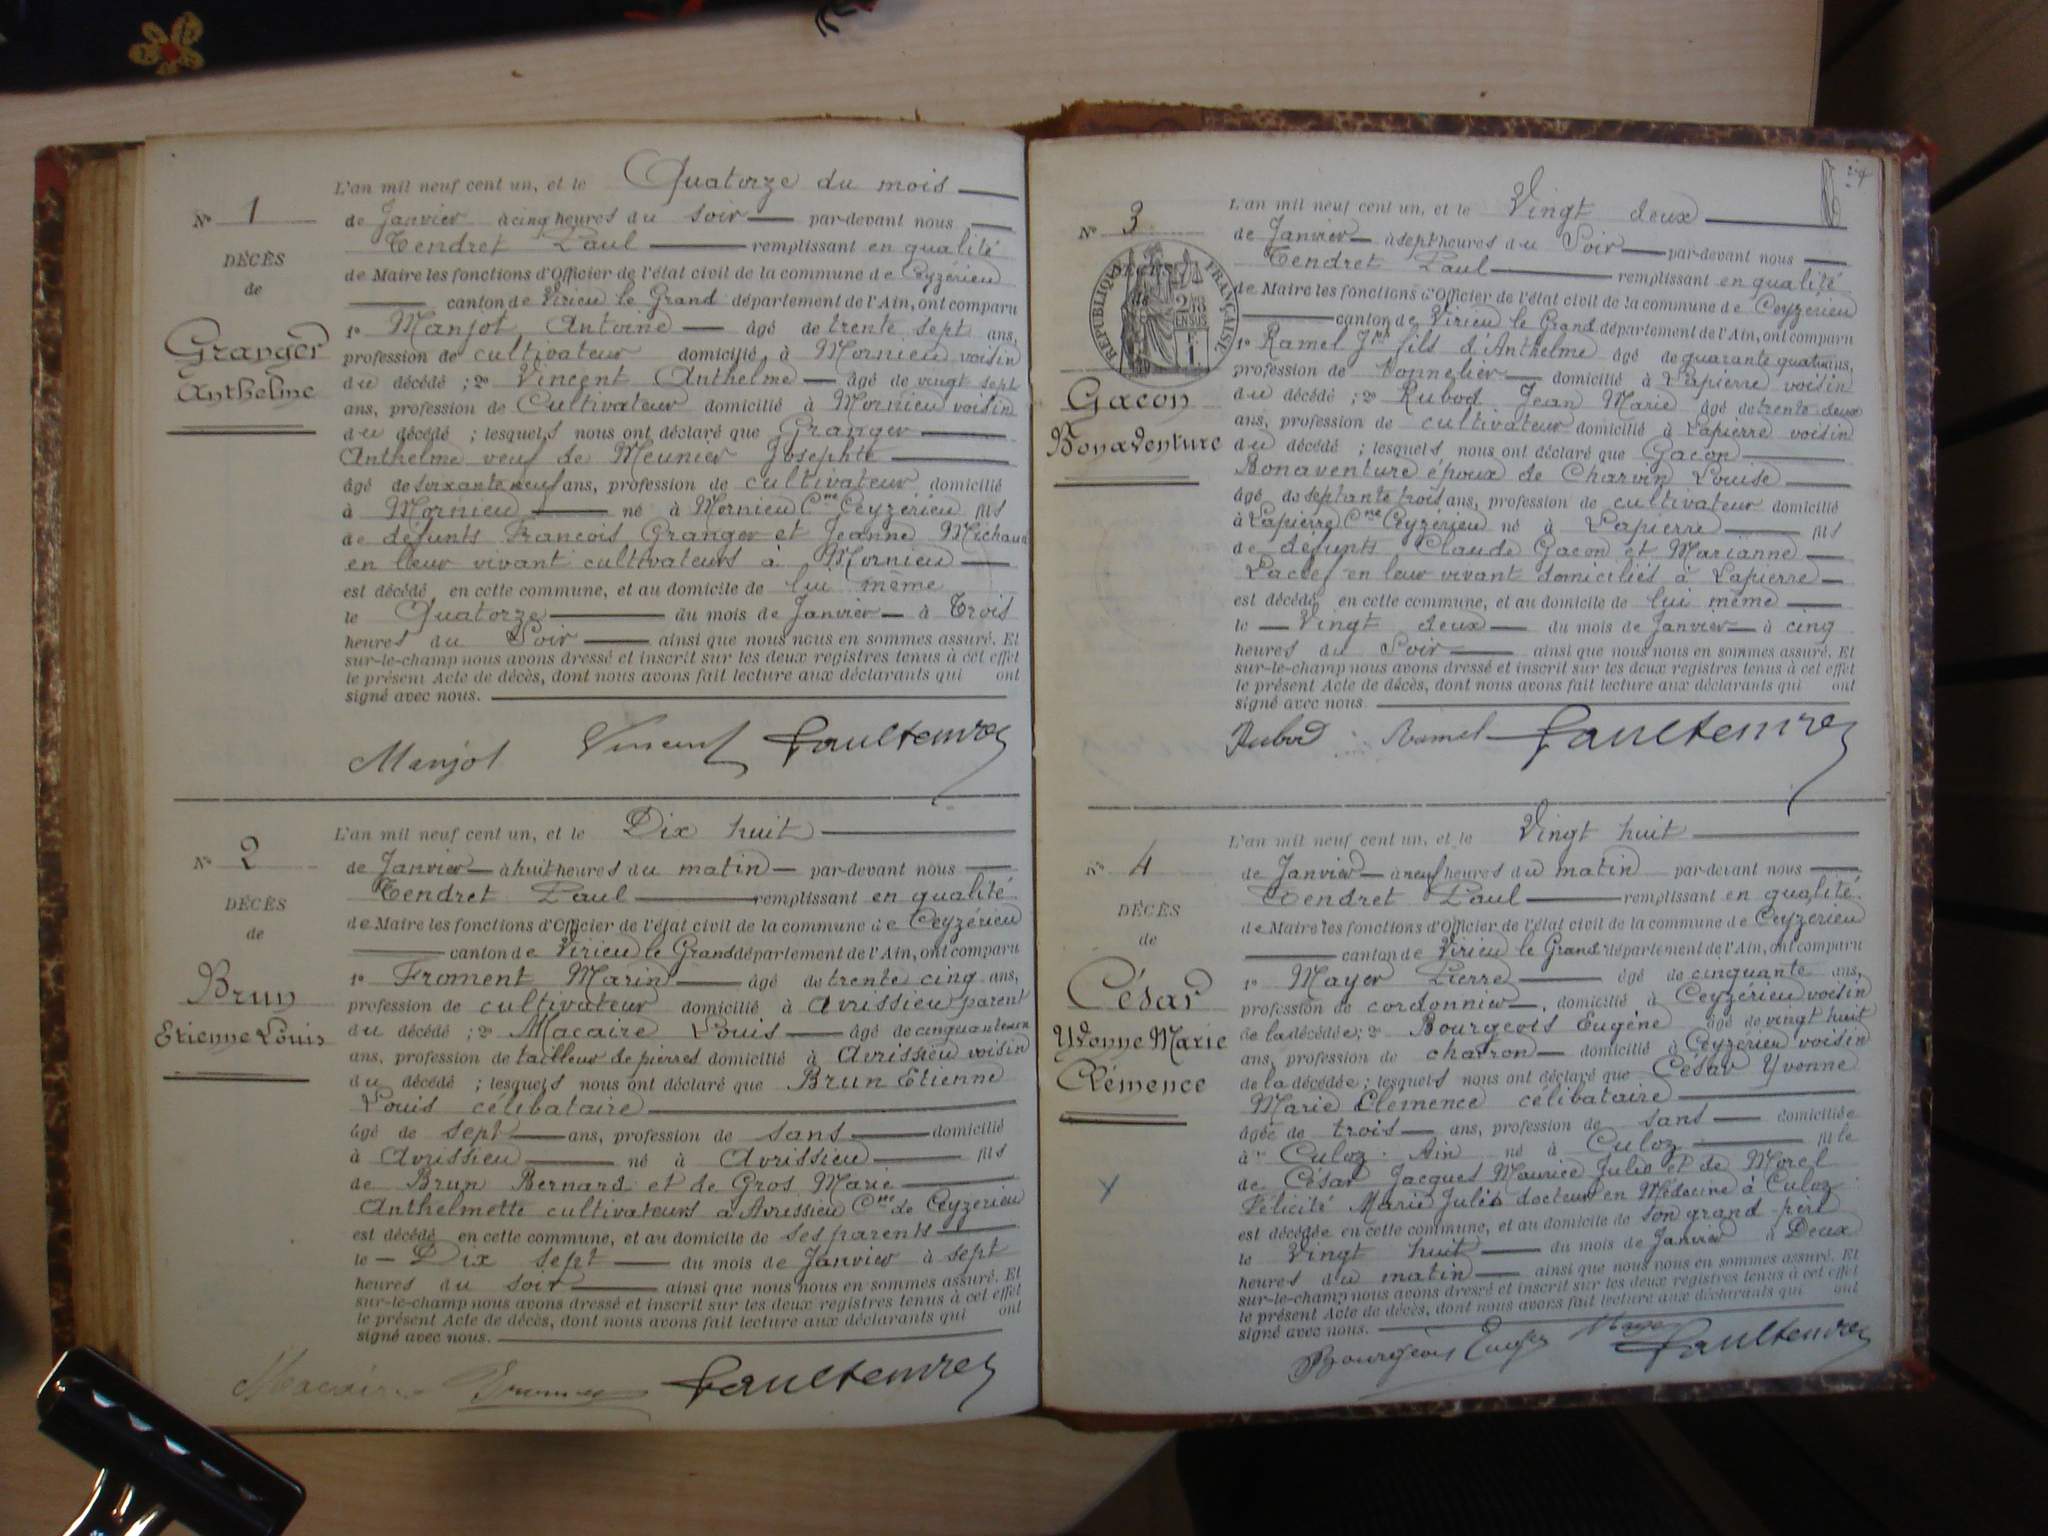 L'an mil neuf cent un, et le Quatorze du mois
N° 1
de Janvier à cinq heures du soir par-devant nous
Tendret Paul remplissant en qualité
DÉCÈS
de
de Maire les fonctions d'Officier de l'état civil de la commune de Ceyzérieu
canton de Virieu le Grand département de l'Ain, ont comparu
Granger
Anthelme
1° Manjot Antoine âgé de trente sept ans,
profession de cultivateur domicilié à Mornieu voisin
du décédé ; 2° Vincent Anthelme âgé de vingt sept
ans, profession de Cultivateur domicilié à Mornieu voisin
du décédé ; lesquels nous ont déclaré que Granger
Anthelme veuf de Meunier Josephte
âgé de soixante neuf ans, profession de cultivateur domicilié
à Mornieu né à Mornieu Cne Ceyzérieu fils
de défunts François Granger et Jeanne Michaud
en leur vivant cultivateurs à Mornieu
est décédé en cette commune, et au domicile de lui même
le Quatorze du mois de Janvier à Trois
heures du Soir ainsi que nous nous en sommes assuré. Et
sur-le-champ nous avons dressé et inscrit sur les deux registres tenus à cet effet
le présent Acte de décès, dont nous avons fait lecture aux déclarants qui ont
signé avec nous.
Manjot Vincent Paul Tendret
L'an mil neuf cent un, et le Dix huit
N° 2
de Janvier à huit heures du matin par-devant nous
Tendret Paul remplissant en qualité
DÉCÈS
de
de Maire les fonctions d'Officier de l'état civil de la commune de Ceyzérieu
canton de Virieu le Grand département de l'Ain, ont comparu
Brun
Etienne Louis
1° Froment Marin âgé de trente cinq ans,
profession de cultivateur domicilié à Avrissieu parent
du décédé ; 2° Macaire Louis âgé de
ans, profession de tailleur de pierres domicilié à Avrissieu voisin
du décédé ; lesquels nous ont déclaré que Brun Etienne
Louis célibataire
âgé de sept ans, profession de sans domicilié
à Avrissieu né à Avrissieu fils
de Brun Bernard et de Gros Marie
Anthelmette cultivateurs à Avrissieu Cne de Ceyzérieu
est décédé en cette commune, et au domicile de ses parents
le Dix sept du mois de Janvier à sept
heures du soir ainsi que nous nous en sommes assuré. Et
sur-le-champ nous avons dressé et inscrit sur les deux registres tenus à cet effet
le présent Acte de décès, dont nous avons fait lecture aux déclarants qui ont
signé avec nous.
Macaire Froment Paul Tendret
L'an mil neuf cent un, et le Vingt deux
N° 3
de Janvier à sept heures du Soir par-devant nous
Tendret Paul remplissant en qualité
RÉPUBLIQUE FRANÇAISE
de Maire les fonctions d'Officier de l'état civil de la commune de Ceyzérieu
canton de Virieu le Grand département de l'Ain, ont comparu
1° Ramel Jph fils d'Anthelme âgé de quarante quatre ans,
profession de tonnelier domicilié à Lapierre voisin
Gacon
Bonaventure
du décédé ; 2° Rubod Jean Marie âgé de trente deux
ans, profession de cultivateur domicilié à Lapierre voisin
du décédé ; lesquels nous ont déclaré que Gacon
Bonaventure époux de Charvin Louise
âgé de septante trois ans, profession de cultivateur domicilié
à Lapierre Cne Ceyzérieu né à Lapierre fils
de défunts Claude Gacon et Marianne
en leur vivant domiciliés à Lapierre
est décédé en cette commune, et au domicile de lui même
le Vingt deux du mois de Janvier à cinq
heures du Soir ainsi que nous nous en sommes assuré. Et
sur-le-champ nous avons dressé et inscrit sur les deux registres tenus à cet effet
le présent Acte de décès, dont nous avons fait lecture aux déclarants qui ont
signé avec nous.
Rubod Ramel Paul Tendret
L'an mil neuf cent un, et le Vingt huit
N° 4
de Janvier à neuf heures du matin par-devant nous
Tendret Paul remplissant en qualité
DÉCÈS
de
de Maire les fonctions d'Officier de l'état civil de la commune de Ceyzérieu
canton de Virieu le Grand département de l'Ain, ont comparu
César
Yvonne Marie
Clémence
1° Mayer Pierre âgé de cinquante ans,
profession de cordonnier, domicilié à Ceyzérieu voisin
de la décédée ; 2° Bourgeois Eugène âgé de vingt huit
ans, profession de charron domicilié à Ceyzérieu voisin
de la décédée ; lesquels nous ont déclaré que César Yvonne
Marie Clemence célibataire
âgée de trois ans, profession de sans domiciliée
à Culoz Ain né à Culoz fille
de César Jacques Maurice Julie et de Morel
Félicité Marie Julie docteur en Médecine à Culoz
est décédée en cette commune, et au domicile de son grand père
le Vingt huit du mois de Janvier à Deux
heures du matin ainsi que nous nous en sommes assuré. Et
sur-le-champ nous avons dressé et inscrit sur les deux registres tenus à cet effet
le présent Acte de décès, dont nous avons fait lecture aux déclarants qui ont
signé avec nous.
Bourgeois Eugène Mayer Paul Tendret